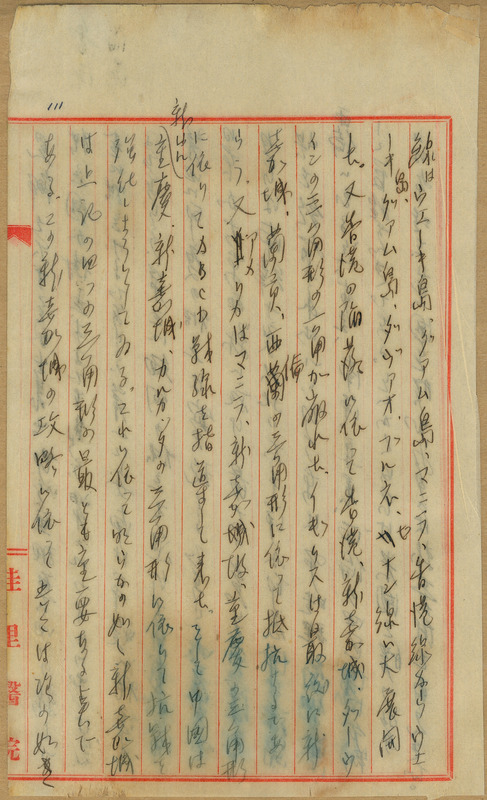 線はウエーキ島、グアム島、マニラ、香港線からウエ
ーキ島、グアム島、ダバアオ、ブルネ、サイゴン線に大展開
た。又香港の陥落に依って香港、新嘉城、ダーウ
インの三角形の一角が崩れた。イギリスは最後に新
嘉城、蘭貢、西蘭の三角形に依って抵抗するであ
らう。又アメリカはマニラ、新嘉城、重慶の三角形
に依りてABCD戦線を指導して来た。そして中国は
重慶、新嘉城、カルカッタの三角形に依りて抗戦を
強化しようとしてゐる。これに依って明らかの如く新嘉城
は上記の四つの三角形の最も重要なる点で
ある。この新嘉城の攻略に依って は次の如き
桂里醫院